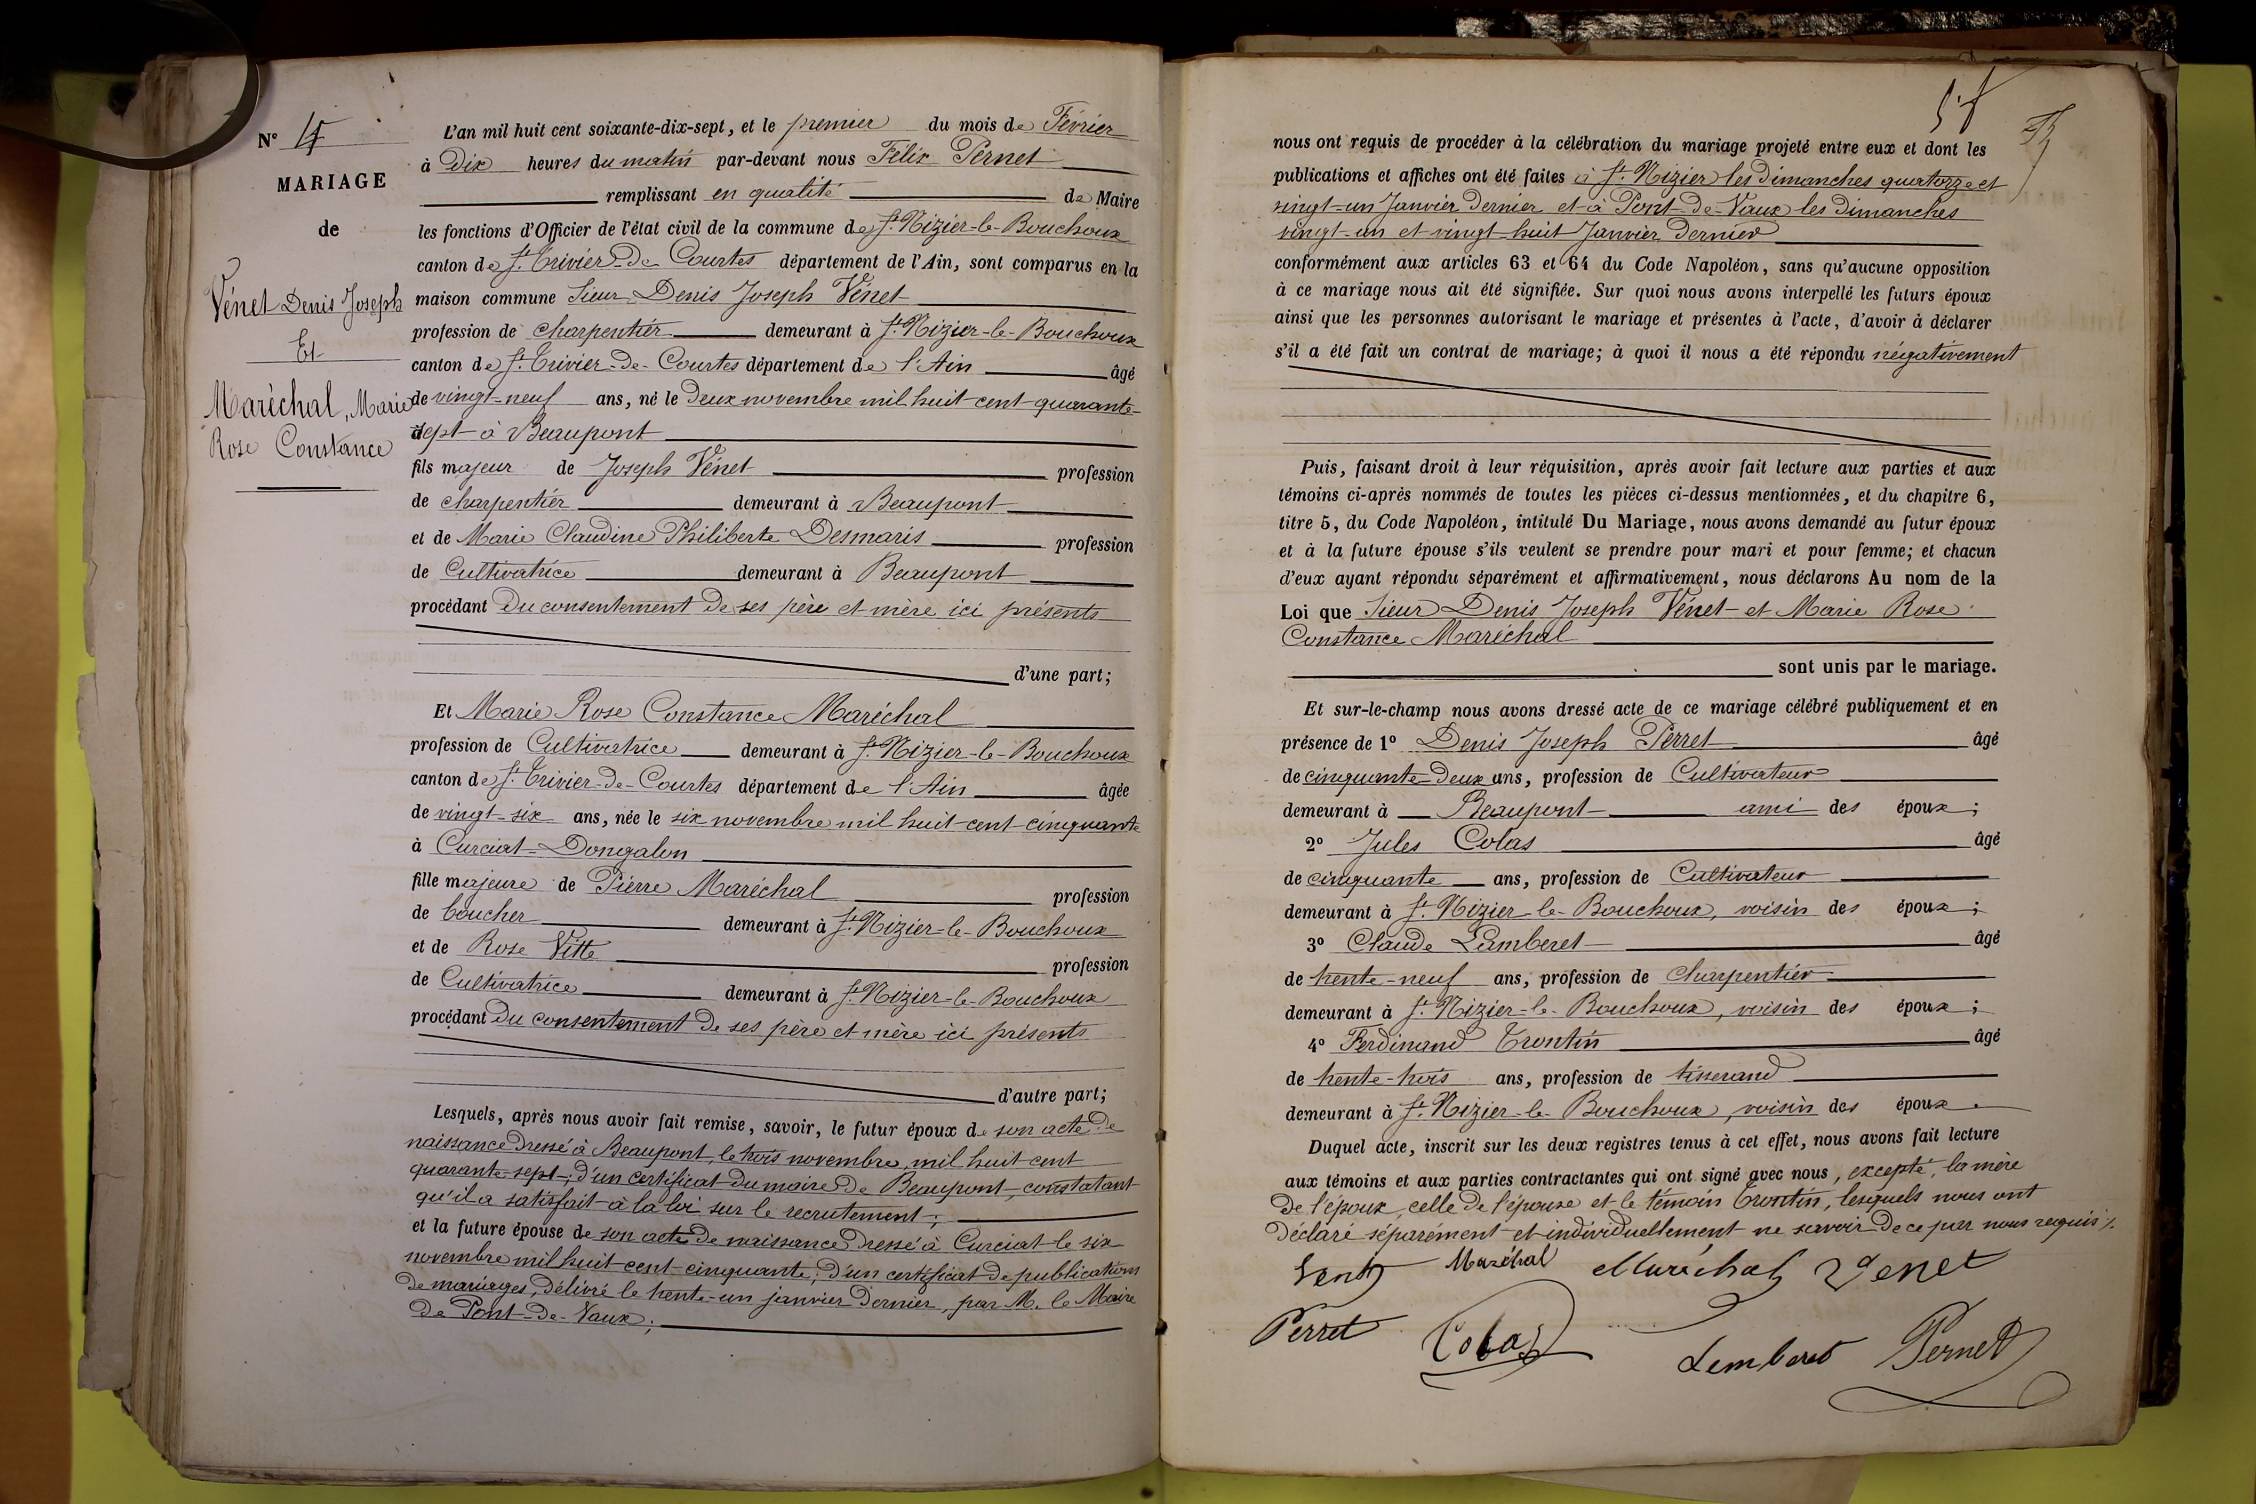 N° 4
MARIAGE
de
Vénet Denis Joseph
Et
Maréchal, Marie
Rose Constance
L'an mil huit cent soixante-dix-sept, et le premier du mois de Février
à Dix heures du matin par-devant nous Félix Pernet
remplissant en qualité de Maire
les fonctions d'Officier de l'état civil de la commune de St. Nizier-le-Bouchoux
canton de St. Trivier-de-Courtes département de l'Ain, sont comparus en la
maison commune Sieur Denis Joseph Vénet
profession de charpentier demeurant à St. Nizier-le-Bouchoux
canton de St. Trivier-de-Courtes département de l'Ain âgé
de vingt-neuf ans, né le Deux novembre mil huit cent quarante-
sept à Beaupont
fils majeur de Joseph Vénet profession
de charpentier demeurant à Beaupont
et de Marie Claudine Philiberte Desmaris profession
de Cultivatrice demeurant à Beaupont
procédant Du consentement De ses père et mère ici présents
d'une part;
Et Marie Rose Constance Maréchal
profession de Cultivatrice demeurant à St. Nizier-le-Bouchoux
canton de St. Trivier-de-Courtes département de l'Ain âgée
de vingt-six ans, née le six novembre mil huit cent cinquante
à Curciat-Dongalon
fille majeure de Pierre Maréchal profession
de boucher demeurant à St. Nizier-le-Bouchoux
et de Rose Vitte profession
de Cultivatrice demeurant à St. Nizier-le-Bouchoux
procédant Du consentement De ses père et mère ici présents
d'autre part;
Lesquels, après nous avoir fait remise, savoir, le futur époux de son acte De
naissance Dressé à Beaupont, le trois novembre, mil huit cent
quarante-sept; d'un certificat Du maire De Beaupont, constatant
qu'il a satisfait à la loi sur le recrutement;
et la future épouse de son acte De naissance Dressé à Curciat le six
novembre mil huit cent cinquante; d'un certificat De publications
De mariages, Délivré le trente-un janvier Dernier, par M. le Maire
De Pont-De-Vaux;
nous ont requis de procéder à la célébration du mariage projeté entre eux et dont les
publications et affiches ont été faites à St. Nizier les Dimanches quatorze et
vingt-un Janvier Dernier et à Pont-De-Vaux les Dimanches
vingt-un et vingt-huit Janvier Dernier
conformément aux articles 63 et 64 du Code Napoléon, sans qu'aucune opposition
à ce mariage nous ait été signifiée. Sur quoi nous avons interpellé les futurs époux
ainsi que les personnes autorisant le mariage et présentes à l'acte, d'avoir à déclarer
s'il a été fait un contrat de mariage; à quoi il nous a été répondu négativement
Puis, faisant droit à leur réquisition, après avoir fait lecture aux parties et aux
témoins ci-après nommés de toutes les pièces ci-dessus mentionnées, et du chapitre 6,
titre 5, du Code Napoléon, intitulé Du Mariage, nous avons demandé au futur époux
et à la future épouse s'ils veulent se prendre pour mari et pour femme; et chacun
d'eux ayant répondu séparément et affirmativement, nous déclarons Au nom de la
Loi que Sieur Denis Joseph Vénet et Marie Rose
Constance Maréchal
sont unis par le mariage.
Et sur-le-champ nous avons dressé acte de ce mariage célébré publiquement et en
présence de 1° Denis Joseph Perret âgé
de cinquante-Deux ans, profession de Cultivateur
demeurant à Beaupont ami des époux;
2° Jules Colas âgé
de cinquante ans, profession de Cultivateur
demeurant à St. Nizier-le-Bouchoux, voisin des époux;
3° Claude Lamberet âgé
de trente-neuf ans, profession de charpentier
demeurant à St. Nizier-le-Bouchoux, voisin des époux;
4° Ferdinand Trontin âgé
de trente-trois ans, profession de tisserand
demeurant à St. Nizier-le-Bouchoux, voisin des époux.
Duquel acte, inscrit sur les deux registres tenus à cet effet, nous avons fait lecture
aux témoins et aux parties contractantes qui ont signé avec nous, excepté, la mère
De l'époux, celle De l'épouse et le témoin Trontin, lesquels nous ont
Déclaré séparément et individuellement ne savoir De ce par nous requis ./.
Maréchal Maréchal Venet
Perret Colas Lamberet Pernet